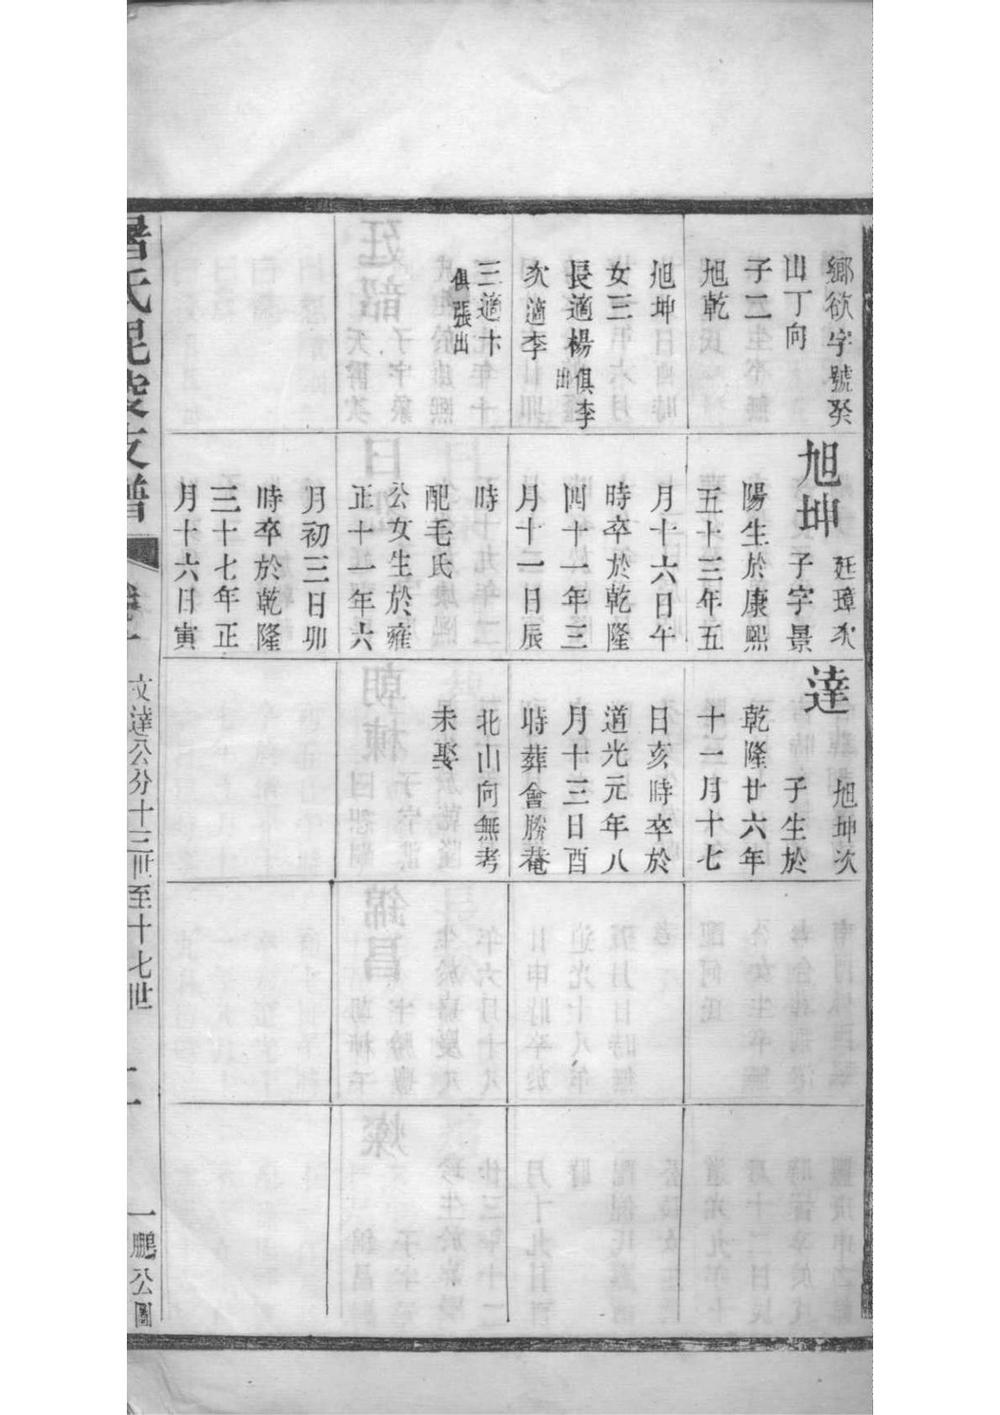 鄉欲字號癸
山丁向
子二
旭乾
旭坤
女三
長適楊俱李
出
次適李
三適卞
俱張出
旭坤
廷璋次
子字景
陽生於康熙
五十三年五
月十六日午
時卒於乾隆
四十一年三
月十二日辰
時
配毛氏
公女生於雍
正十一年六
月初三日卯
時卒於乾隆
三十七年正
月十六日寅
達
旭坤次
子生於
乾隆廿六年
十一月十七
日亥時卒於
道光元年八
月十三日酉
時葬會勝菴
北山向無考
未娶
氏毘陵支譜
文達公分十三世至十七世
十一
一鵬公圖